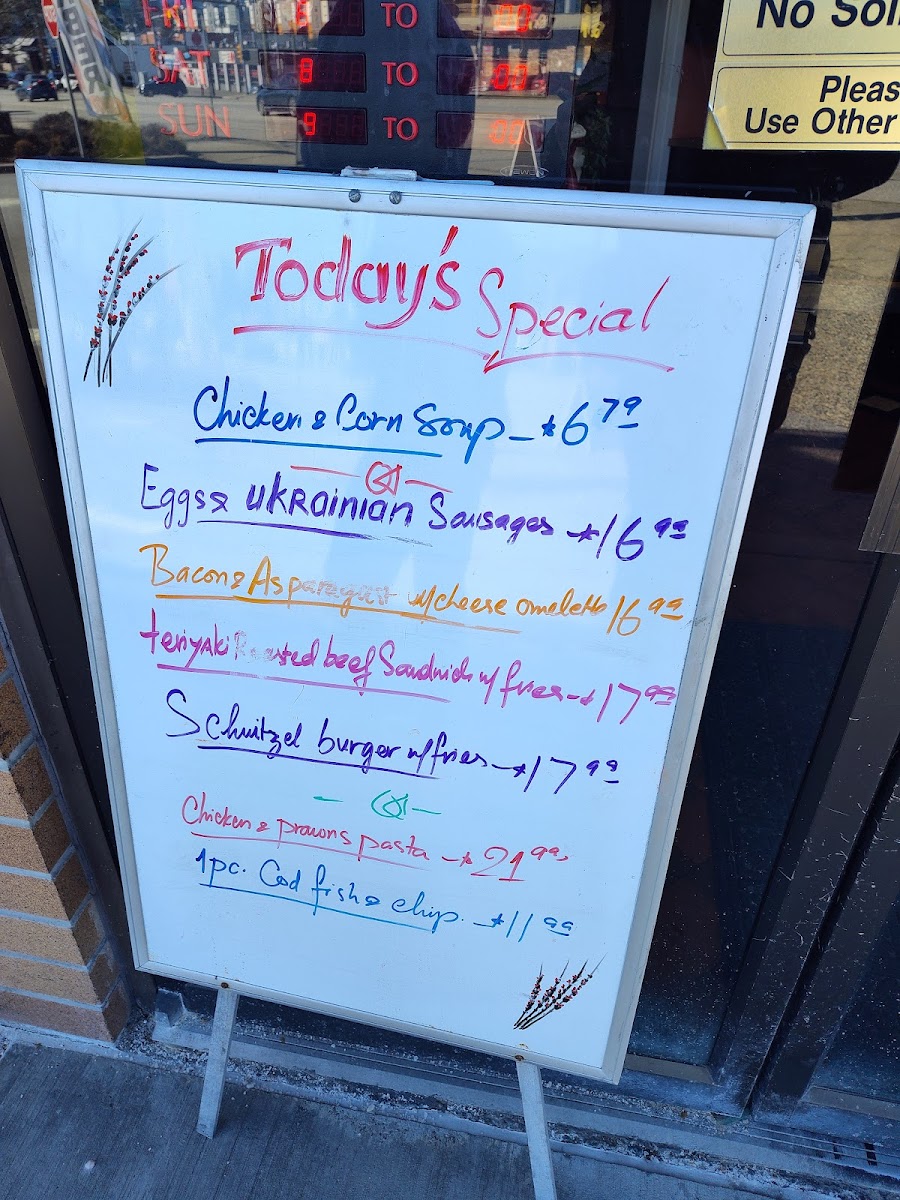 FRI TO
SAT 8 TO
SUN 8 TO
No Soli
Pleas
Use Other
Today's Special
Chicken & Corn Soup - $6 79
Eggs & UKRAINIAN Sausages - $16 99
Bacon & Asparagus w/cheese omelette 16 99
teriyaki Roasted beef Sandwich w/ fries - $17 99
Schnitzel burger w/fries - $17 99
Chicken & prawns pasta - $21 99
1pc. Cod fish & chip. - $11 99